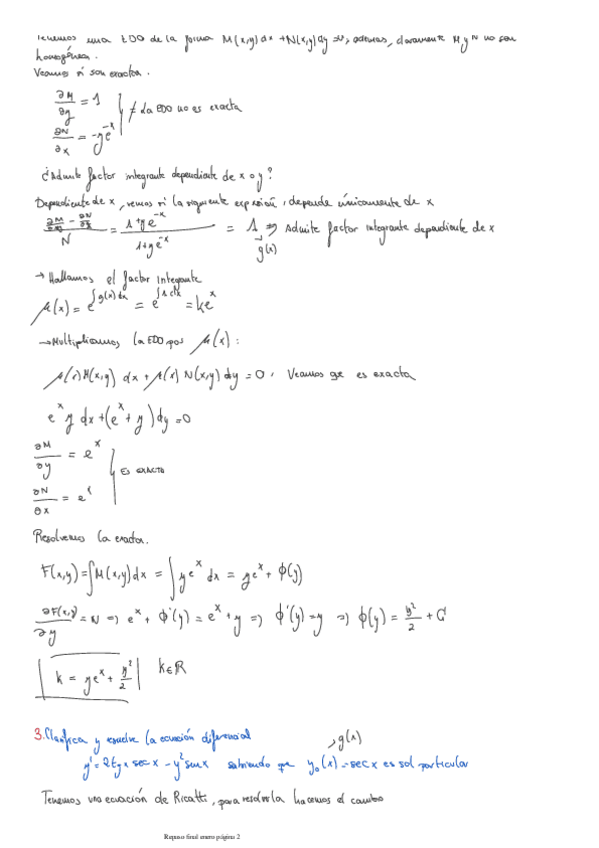 Tenemos una EDO de la forma M(x,y)dx + N(x,y)dy = 0, además, claramente M y N no son
homogénea.
Veamos si son exactas.
∂M/∂y = 1
∂N/∂x = -ye^-x
≠ La EDO no es exacta
¿Admite factor integrante dependiente de x o y?
Dependiente de x, vemos si la siguiente expresión, depende únicamente de x
(∂M/∂y - ∂N/∂x)/N = (1+ye^-x)/(1+ye^-x) = 1 => Admite factor integrante dependiente de x
g(x)
→ Hallamos el factor integrante
μ(x) = e^∫g(x)dx = e^∫1dx = ke^x
→ Multiplicamos la EDO por μ(x):
μ(x)M(x,y) dx + μ(x) N(x,y) dy = 0, Veamos qe es exacta
e^x y dx + (e^x + y) dy = 0
∂M/∂y = e^x
∂N/∂x = e^x
Es exacta
Resolvemos la exacta.
F(x,y) = ∫M(x,y)dx = ∫ye^x dx = ye^x + ϕ(y)
∂F(x,y)/∂y = N => e^x + ϕ'(y) = e^x + y => ϕ'(y) = y => ϕ(y) = y²/2 + C
k = ye^x + y²/2 k∈ℝ
3. Clasifica y resuelve la ecuación diferencial
, g(x)
y' = 2tgx secx - y² senx sabiendo qe y₀(x) = secx es sol particular
Tenemos una ecuación de Ricatti, para resolverla hacemos el cambio
Repaso final enero página 2